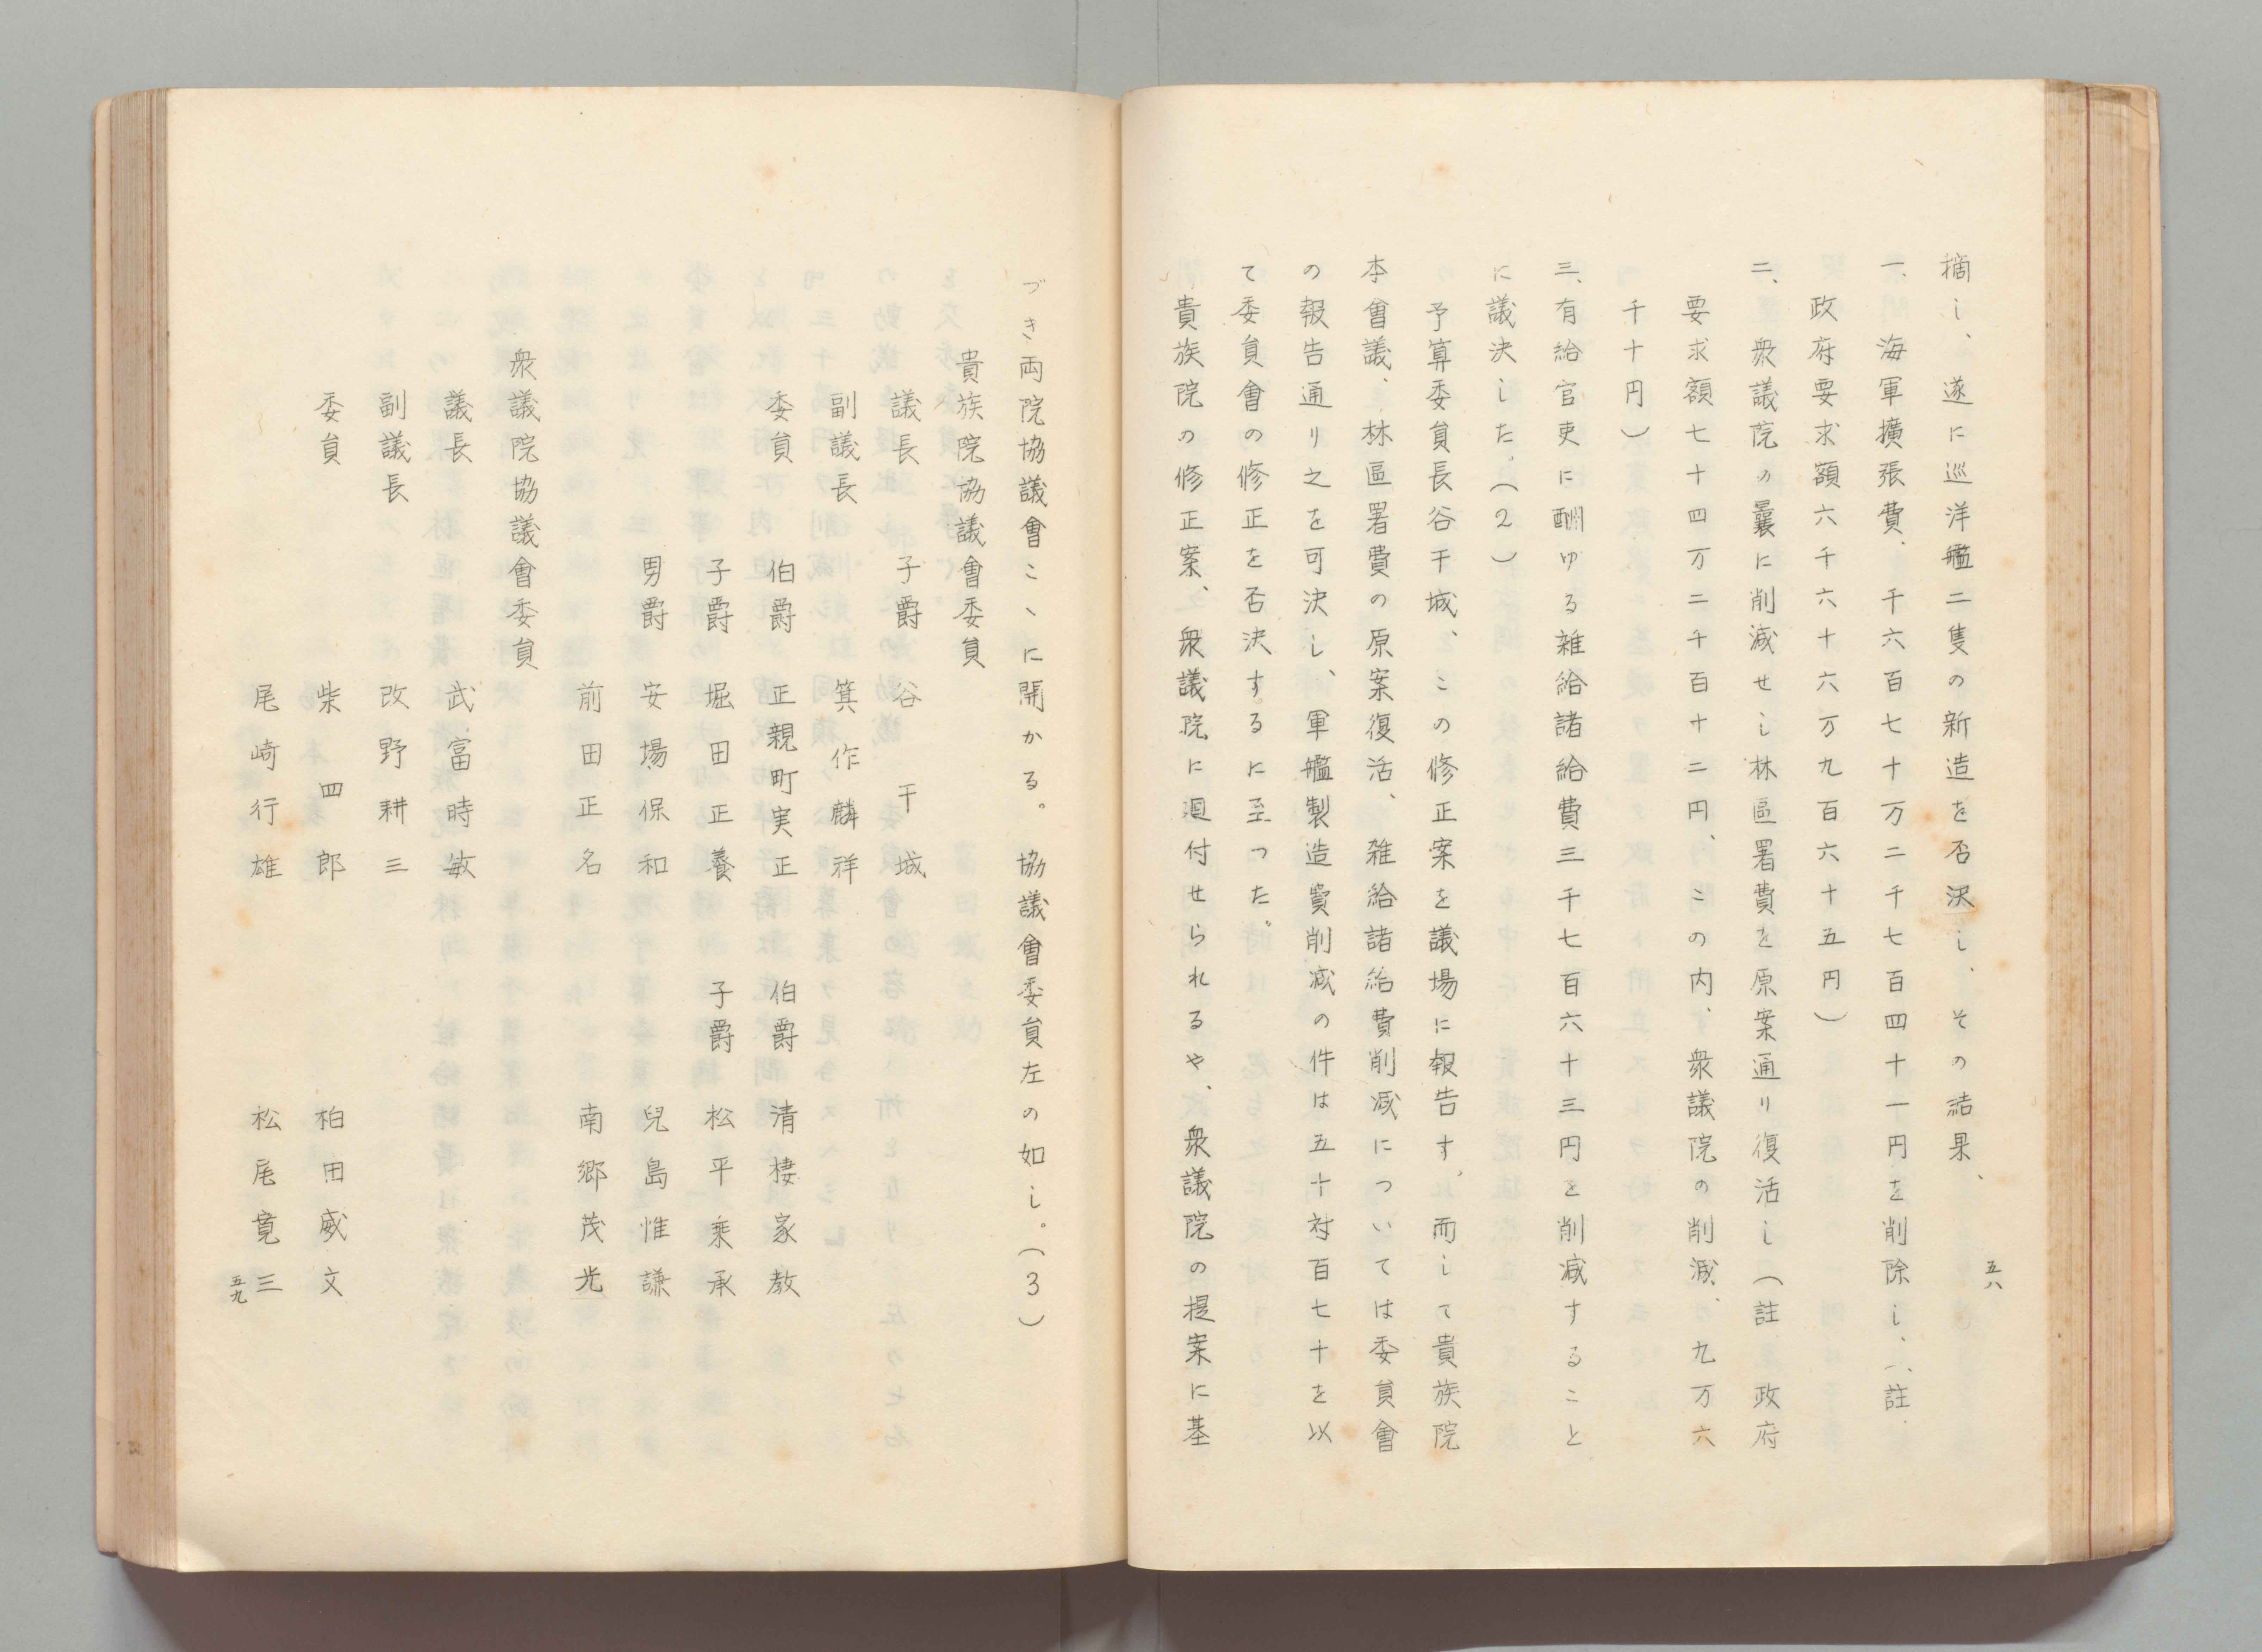 五八
摘し、遂に巡洋艦二隻の新造を否決し、その結果、
一、海軍擴張費、千六百七十万二千七百四十一円を削除し、（註、
政府要求額六千六十六万九百六十五円）
二、衆議院の曩に削減せし林區署費を原案通り復活し（註 政府
要求額七十四万二千百十二円、この内、衆議院の削減、九万六
千十円）
三、有給官吏に酬ゆる雑給諸給費三千七百六十三円を削減すること
に議決した。（２）
予算委員長谷干城、この修正案を議場に報告す。而して貴族院
本會議、林區署費の原案復活、雑給諸給費削減については委員會
の報告通り之を可決し、軍艦製造費削減の件は五十対百七十を以
て委員會の修正を否決するに至つた。
貴族院の修正案、衆議院に廻付せられるや、衆議院の提案に基
づき両院協議會こゝに開かる。協議會委員左の如し。（３）
貴族院協議會委員
議長 子爵 谷干城
副議長 箕作麟祥
委員 伯爵 正親町実正 伯爵 清棲家教
子爵 堀田正養 子爵 松平乗承
男爵 安場保和 兒島惟謙
前田正名 南郷茂光
衆議院協議會委員
議長 武富時敏
副議長 改野耕三
委員 柴四郎 柏田盛文
尾崎行雄 松尾寛三
五九